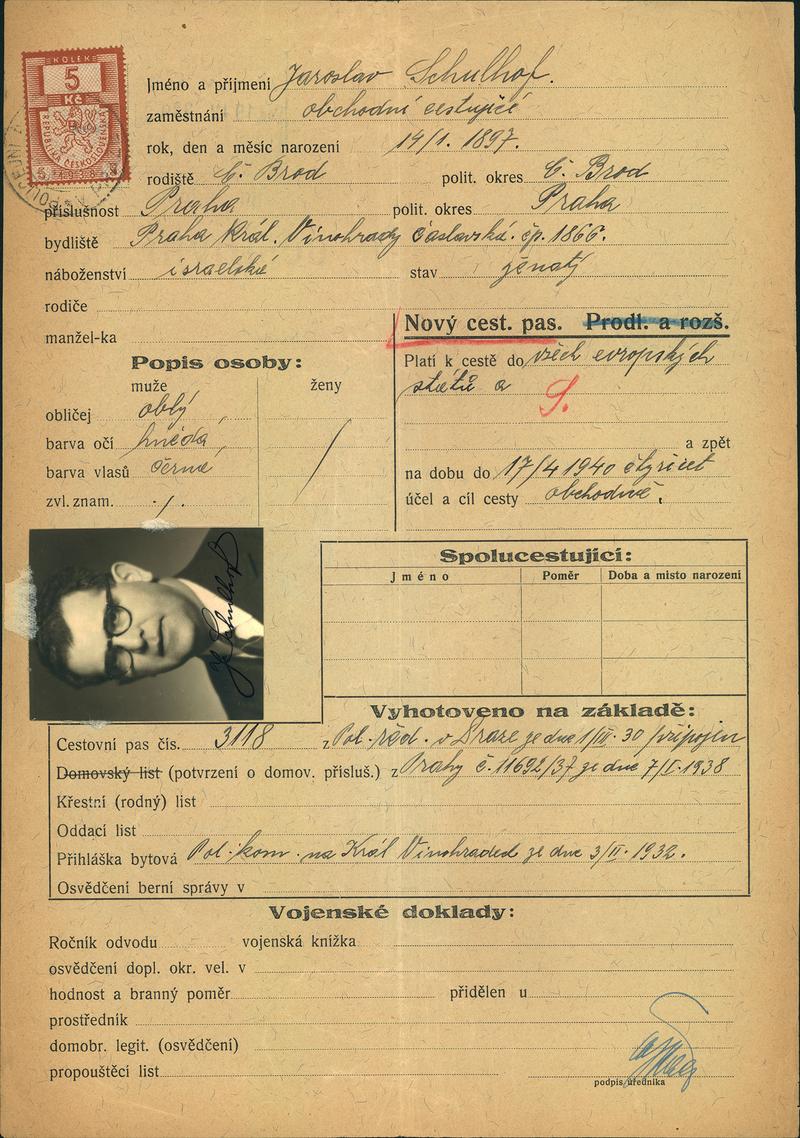 KOLEK
5
Kč
REPUBLIKA ČESKOSLOVENSKÁ
5 1938
Jméno a příjmení Jaroslav Schulhof.
zaměstnání obchodní cestující
rok, den a měsíc narození 14/1. 1897.
rodiště Č. Brod polit. okres Č. Brod
příslušnost Praha polit. okres Praha
bydliště Praha Král. Vinohrady Čáslavská. čp. 1866.
náboženství israelské stav ženatý
rodiče
manžel-ka
Nový cest. pas. Prodl. a rozš.
Popis osoby:
muže ženy
obličej oblý
barva očí hnědá
barva vlasů černé
zvl. znam. ·/.
Platí k cestě do všech evropských
států a
S.
a zpět
na dobu do 17/4 1940 čtyřicet
účel a cíl cesty obchodně.
J. Schulhof
Spolucestující:
Jméno Poměr Doba a místo narození
Vyhotoveno na základě:
Cestovní pas čís. 3118 z Pol. řed. v Praze ze dne 1/III. 30 /připojen
Domovský list (potvrzení o domov. přísluš.) z Prahy č. 11692/37 ze dne 7/I. 1938
Křestní (rodný) list
Oddací list
Přihláška bytová Pol. kom. na Král Vinohradech ze dne 3/II. 1932.
Osvědčení berní správy v
Vojenské doklady:
Ročník odvodu vojenská knížka
osvědčení dopl. okr. vel. v
hodnost a branný poměr přidělen u
prostředník
domobr. legit. (osvědčení)
propouštěcí list
podpis úředníka